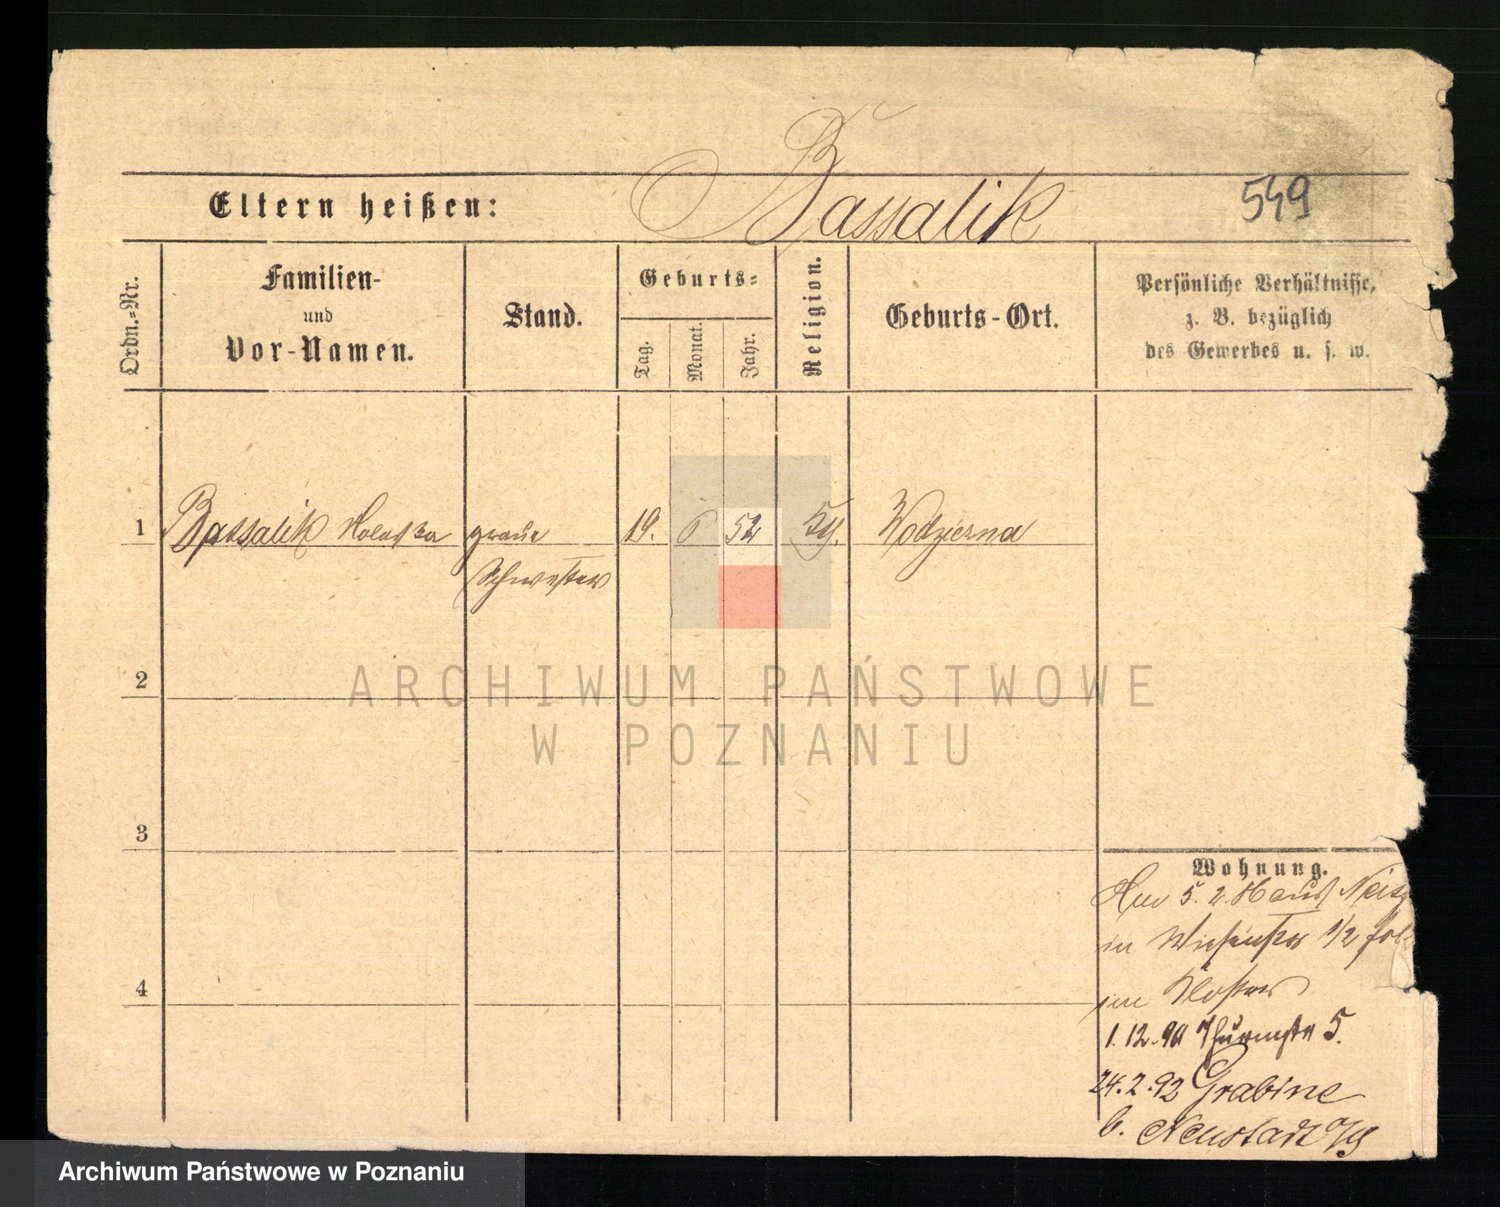 Bassalik
549
Eltern heißen:
Ordn.-Nr.
Familien-
und
Vor-Namen.
Stand.
Geburts-
Tag.
Monat.
Jahr.
Religion.
Geburts-Ort.
Persönliche Verhältnisse,
z. B. bezüglich
des Gewerbes u. s. w.
1
Bassalik
graue
Schwester
19.
6
52
Wodzierna
2
ARCHIWUM PAŃSTWOWE
W POZNANIU
3
Wohnung.
5. 2.
in 1/2
im Kloster
1.12.90 Thurmstr 5.
24.2.92 Grabine
b. Neustadt O/S
4
Archiwum Państwowe w Poznaniu